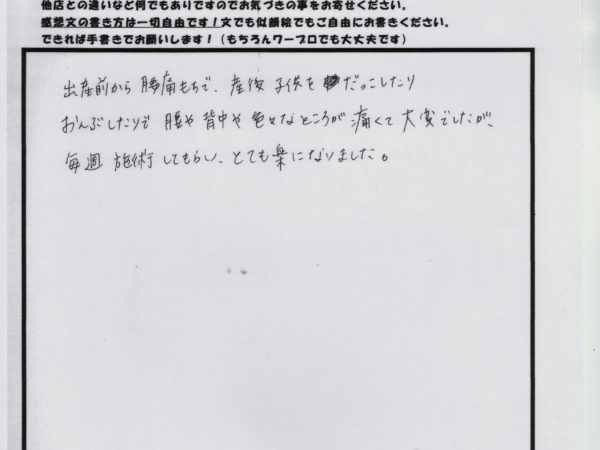 他店との違いなど何でもありですのでお気づきの事をお寄せください。
感想文の書き方は一切自由です！文でも似顔絵でもご自由にお書きください。
できれば手書きでお願いします！（もちろんワープロでも大丈夫です）
出産前から腰痛もちで、産後子供をだっこしたり
おんぶしたりで腰や背中や色々なところが痛くて大変でしたが、
毎週施術してもらい、とても楽になりました。